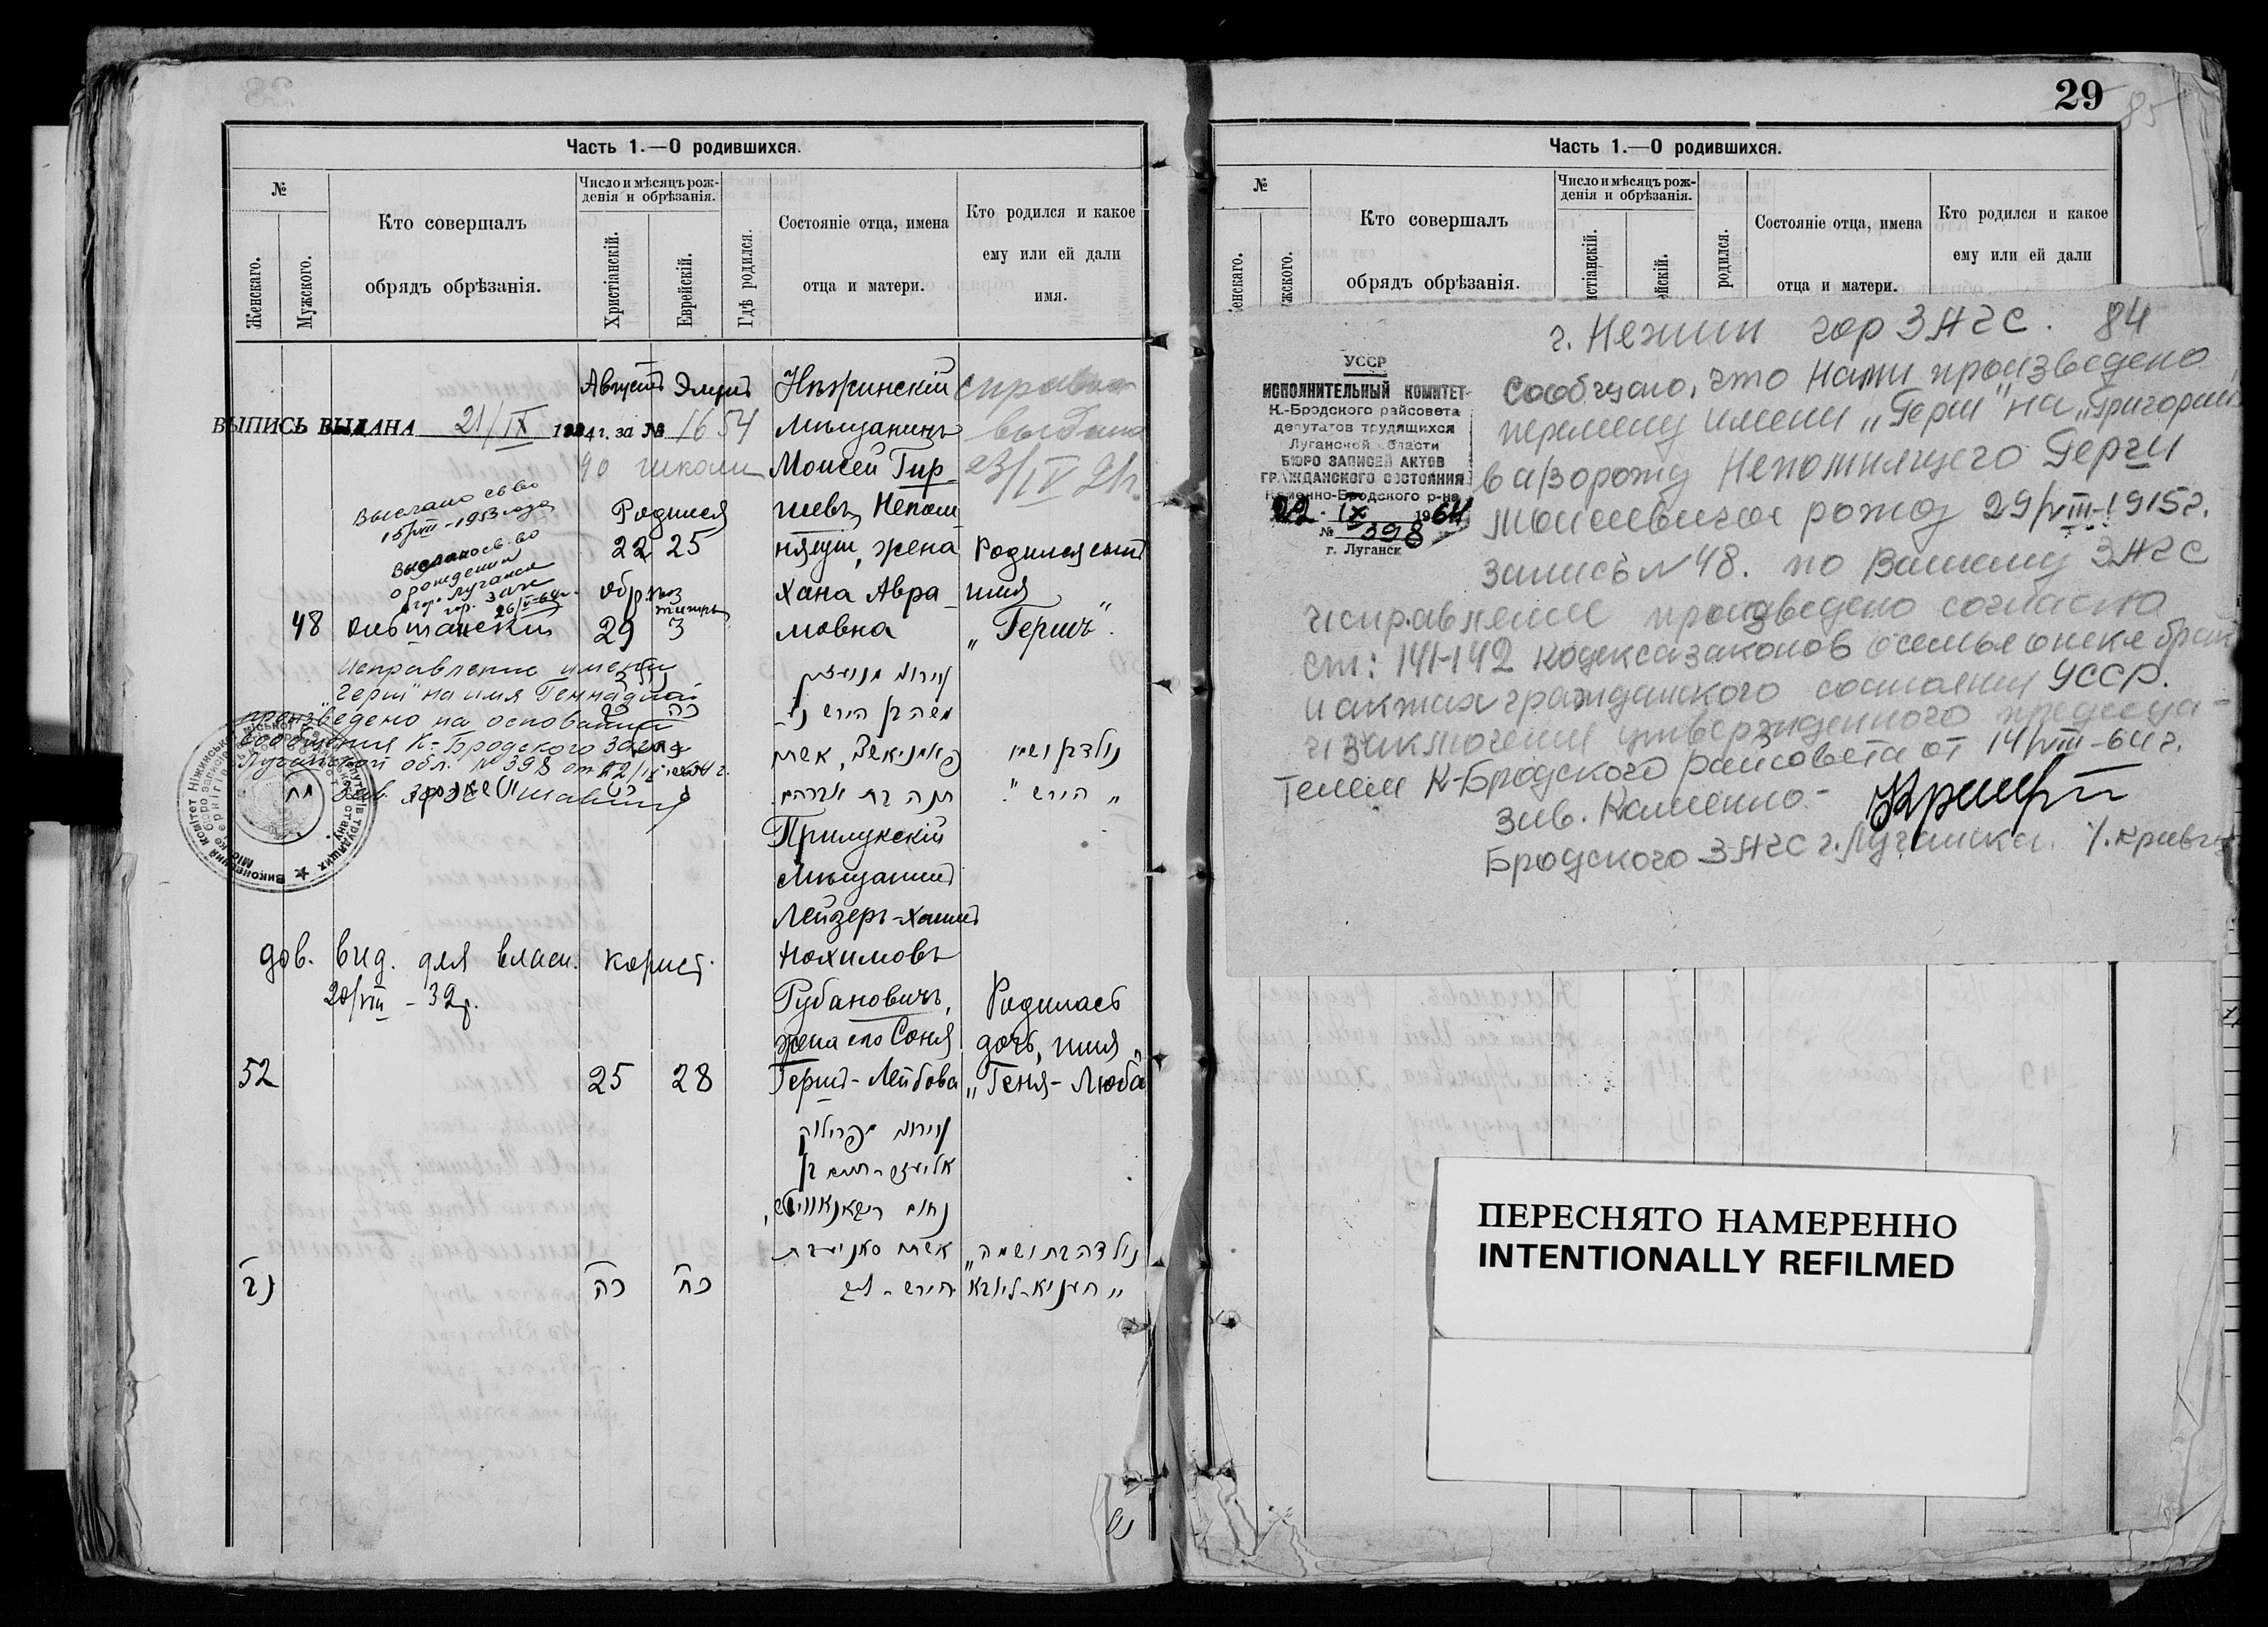 29
85
Часть 1.—О родившихся.
№
Женскаго.
Мужского.
Кто совершалъ
обрядъ обрѣзанія.
Число и мѣсяцъ рож-
денія и обрѣзанія.
Христіанскій.
Еврейскій.
Гдѣ родился.
Состояніе отца, имена
отца и матери.
Кто родился и какое
ему или ей дали
имя.
Августъ Элулъ
Нѣжинскій
справка
ВЫПИСЬ ВЫДАНА 21/IX 1924 г. за № 1654
мѣщанинъ
выдана
Моисей Гир-
23/IV 21г.
Выслано св во
15/VIII-1953 года
Родился
шевъ Непом-
Выслано св-во
о рождении
в гор. Луганск
гор. Загс
26/V-64г.
22 25
нящи, жена
Родился сынъ
обрѣз
Хана Авра-
имя
тишри
48
29 3
мовна
„Гершъ".
Исправление имени
„Герш" на имя Геннадий
произведено на основании
сообщения К-Бродского Загса
Луганской обл. № 398 от 22/IX-64 г.
נולד בן ושמו
„ הירש ".
חנה בת אברהם.
Прилукскій
Мѣщанинъ
Лейзеръ-Хаимъ
дов. вид. для власн. корист.
Нохимовъ
20/VIII - 32р.
Рубановичъ,
Родилась
жена его Соня
дочь, имя
52
25 28
Гершъ-Лейбова
„Геня-Люба"
נולדה בת ושמה
נב
כה
כח
Часть 1.—О родившихся.
№
Кто совершалъ
обрядъ обрѣзанія.
Число и мѣсяцъ рож-
денія и обрѣзанія.
родился.
Состояніе отца, имена
отца и матери.
Кто родился и какое
ему или ей дали
г. Нежин гор ЗАГС. 84
УССР
ИСПОЛНИТЕЛЬНЫЙ КОМИТЕТ
К.-Бродского райсовета
депутатов трудящихся
Луганской области
БЮРО ЗАПИСЕЙ АКТОВ
ГРАЖДАНСКОГО СОСТОЯНИЯ
Каменно-Бродского р-на
22 IX 1964
№ 398
г. Луганск
Сообщаю, что нами произведено
перемену имени „Герш" на „Григорий
в а/з о рожд Непомнящего Герш
Моисеевича рожд 29/VIII-1915г.
запись № 48. по Вашему ЗАГС
исправление произведено согласно
ст: 141-142 кодекса законов о семье опеке браке
и актах гражданского состояния УССР.
и заключения утвержденного председа-
телем К-Бродского райсовета от 14/VIII-64 г.
Зав. Каменно-
Бродского ЗАГС г. Луганска.
ПЕРЕСНЯТО НАМЕРЕННО
INTENTIONALLY REFILMED